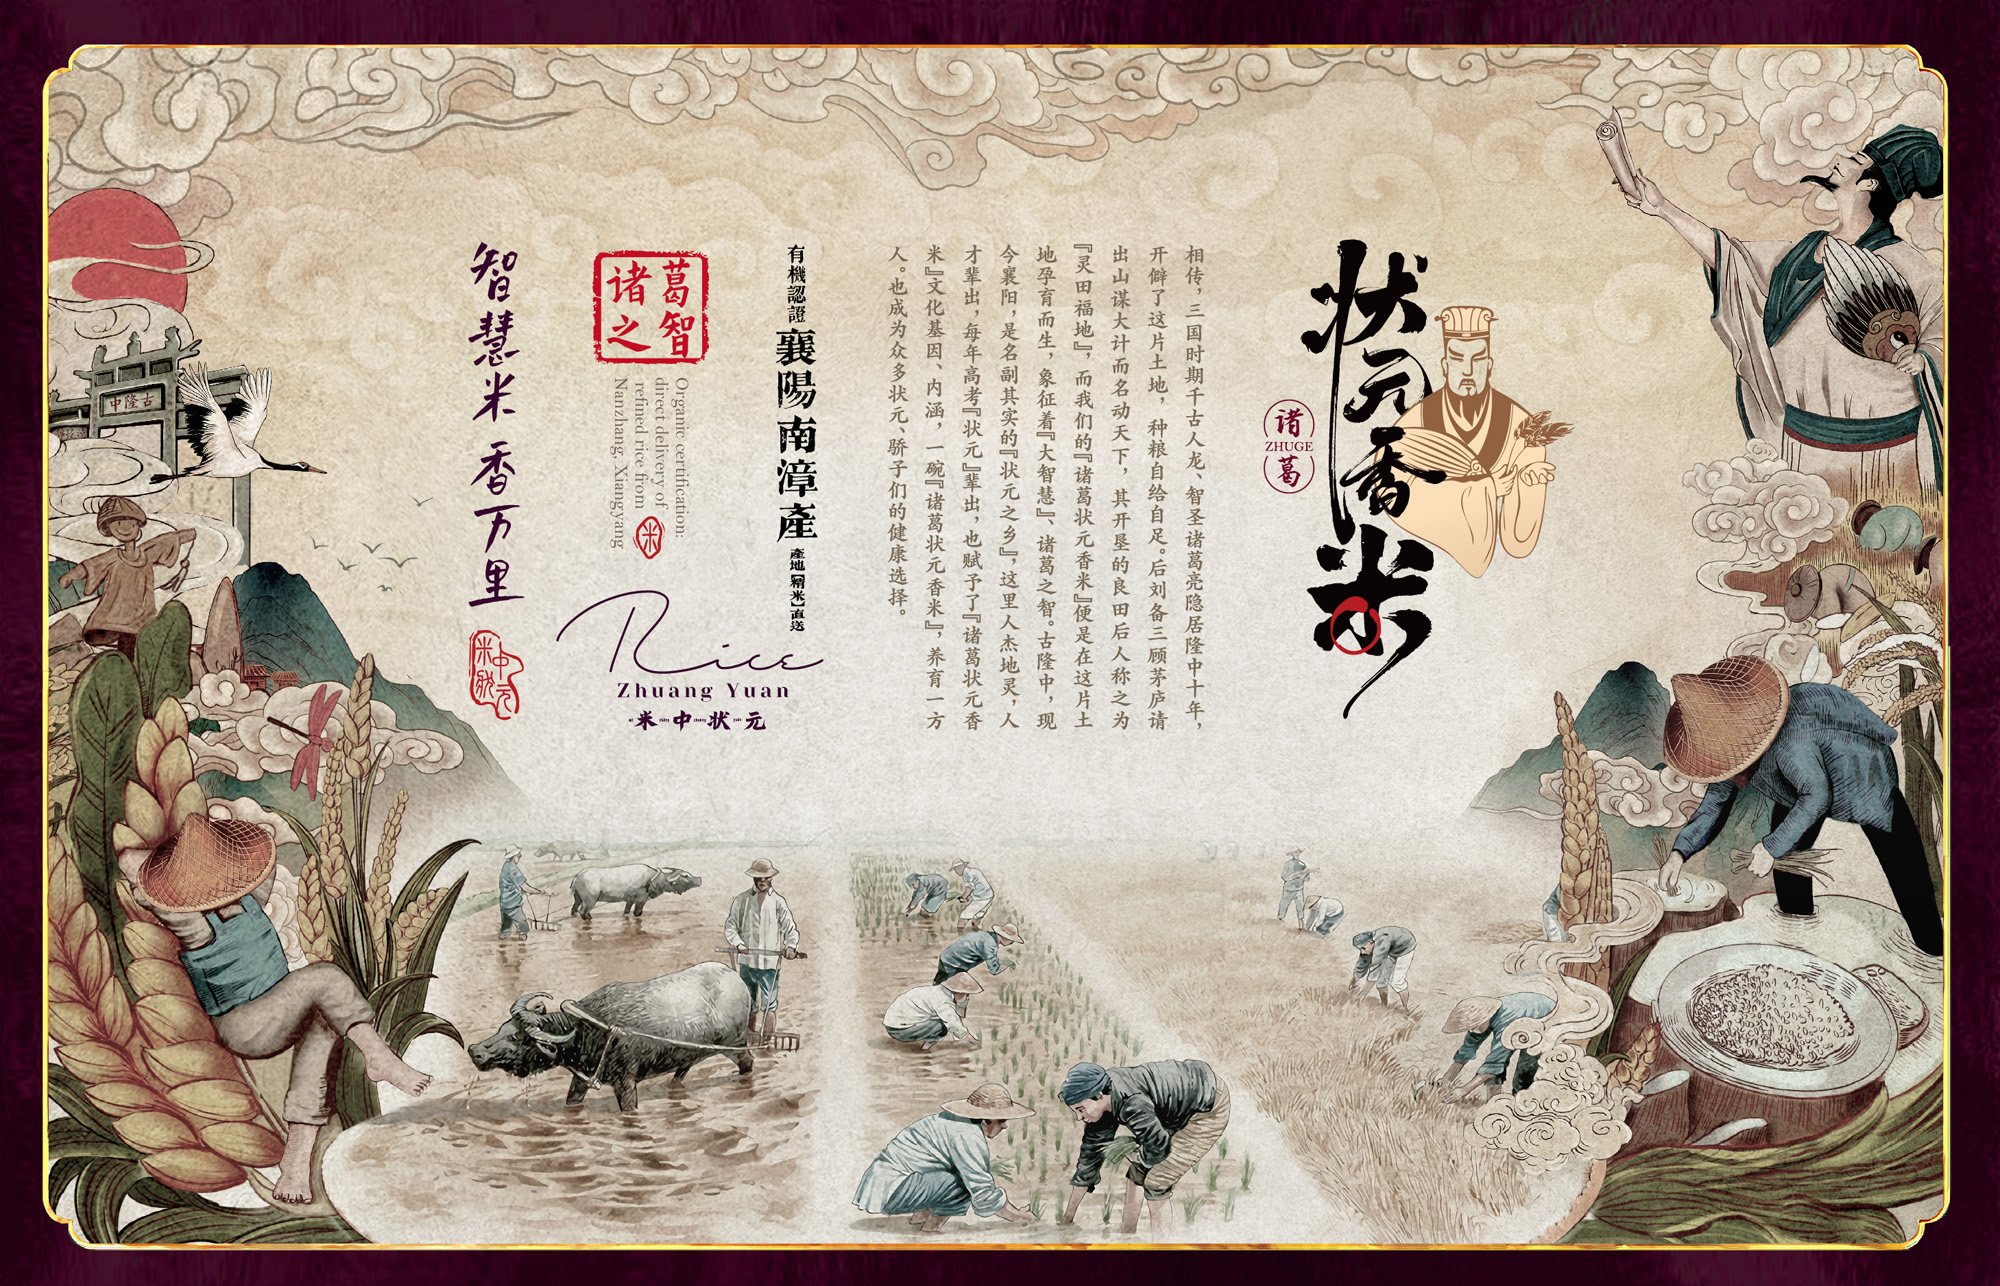 状元香米
诸葛
ZHUGE
相传，三国时期千古人龙、智圣诸葛亮隐居隆中十年，
开僻了这片土地，种粮自给自足。后刘备三顾茅庐请
出山谋大计而名动天下，其开垦的良田后人称之为
『灵田福地』，而我们的『诸葛状元香米』便是在这片土
地孕育而生，象征着『大智慧』、诸葛之智。古隆中，现
今襄阳，是名副其实的『状元之乡』，这里人杰地灵，人
才辈出，每年高考『状元』辈出，也赋予了『诸葛状元香
米』文化基因、内涵，一碗『诸葛状元香米』，养育一方
人。也成为众多状元、骄子们的健康选择。
有機認證
襄陽南漳產
產地【精米】直送
诸葛之智
Organic certification:
direct delivery of
refined rice from
Nanzhang, Xiangyang
米
Rice
Zhuang Yuan
米中状元
智慧米香万里
米中状元
古隆中